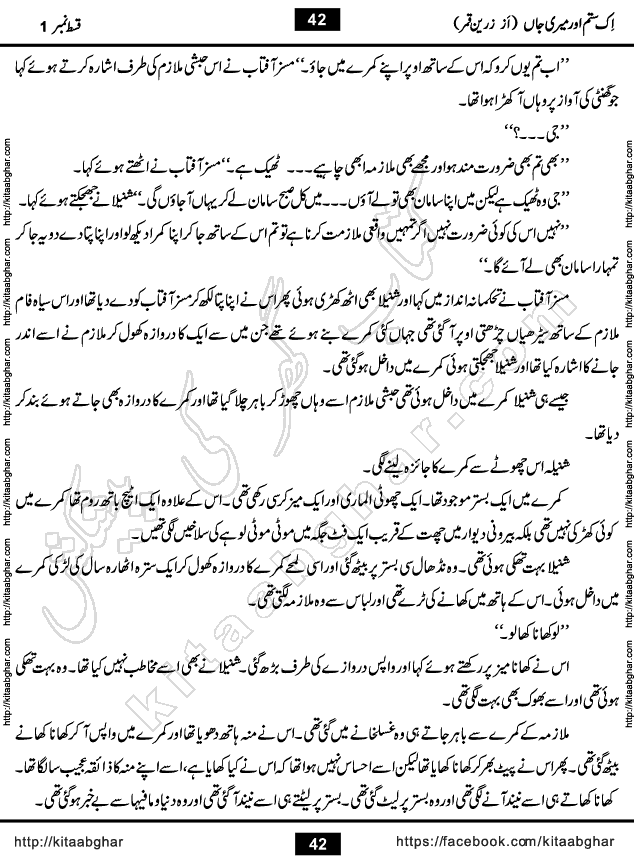 اِک ستم اور میری جاں (از زرین قمر)
42
قسط نمبر 1
’’اب تم یوں کرو کہ اس کے ساتھ اوپر اپنے کمرے میں جاؤ۔‘‘ مسز آفتاب نے اس حبشی ملازم کی طرف اشارہ کرتے ہوئے کہا
جو گھنٹی کی آواز پر وہاں آکھڑا ہوا تھا۔
’’جی ۔۔۔؟‘‘
’’بھی تم بھی ضرورت مند ہو اور مجھے بھی ملازمہ ابھی چاہیے ۔۔۔ ٹھیک ہے۔‘‘ مسز آفتاب نے اٹھتے ہوئے کہا۔
’’جی وہ ٹھیک ہے لیکن میں اپنا سامان بھی تو لے آؤں ۔۔۔ میں کل صبح سامان لے کر یہاں آجاؤں گی۔‘‘ شنیلا نے جھجکتے ہوئے کہا۔
’’نہیں اس کی کوئی ضرورت نہیں اگر تمہیں واقعی ملازمت کرنا ہے تو تم اس کے ساتھ جا کر اپنا کمرا دیکھ لو اور اپنا پتا دے دو یہ جا کر
تمہارا سامان بھی لے آئے گا۔‘‘
مسز آفتاب نے تحکمانہ انداز میں کہا اور شنیلا بھی اٹھ کھڑی ہوئی پھر اس نے اپنا پتا لکھ کر مسز آفتاب کو دے دیا تھا اور اس سیاہ فام
ملازم کے ساتھ سیڑھیاں چڑھتی اوپر آگئی تھی جہاں کئی کمرے بنے ہوئے تھے جن میں سے ایک کا دروازہ کھول کر ملازم نے اسے اندر
جانے کا اشارہ کیا تھا اور شنیلا جھجکتی ہوئی کمرے میں داخل ہو گئی تھی۔
جیسے ہی شنیلا کمرے میں داخل ہوئی تھی حبشی ملازم اسے وہاں چھوڑ کر باہر چلا گیا تھا اور کمرے کا دروازہ بھی جاتے ہوئے بند کر
دیا تھا۔
شنیلہ اس چھوٹے سے کمرے کا جائزہ لینے لگی۔
کمرے میں ایک بستر موجود تھا۔ ایک چھوٹی الماری اور ایک میز کرسی رکھی تھی۔ اس کے علاوہ ایک اٹیچ باتھ روم تھا کمرے میں
کوئی کھڑکی نہیں تھی بلکہ بیرونی دیوار میں چھت کے قریب ایک فٹ جگہ میں موٹی موٹی لوہے کی سلاخیں لگی تھیں۔
شنیلا بہت تھکی ہوئی تھی۔ وہ نڈھال سی بستر پر بیٹھ گئی اور اسی لمحے کمرے کا دروازہ کھول کر ایک سترہ اٹھارہ سال کی لڑکی کمرے
میں داخل ہوئی۔ اس کے ہاتھ میں کھانے کی ٹرے تھی اور لباس سے وہ ملازمہ لگتی تھی۔
’’لو کھانا کھا لو۔‘‘
اس نے کھانا میز پر رکھتے ہوئے کہا اور واپس دروازے کی طرف بڑھ گئی۔ شنیلا نے بھی اسے مخاطب نہیں کیا تھا۔ وہ بہت تھکی
ہوئی تھی اور اسے بھوک بھی بہت لگی تھی۔
ملازمہ کے کمرے سے باہر جاتے ہی وہ غسلخانے میں گئی تھی۔ اس نے منہ ہاتھ دھویا تھا اور کمرے میں واپس آکر کھانا کھانے
بیٹھ گئی تھی۔ پھر اس نے پیٹ بھر کر کھانا کھایا تھا لیکن اسے احساس نہیں ہوا تھا کہ اس نے کیا کھایا ہے، اسے اپنے منہ کا ذائقہ عجیب سا لگا تھا۔
کھانا کھاتے ہی اسے نیند آنے لگی تھی اور وہ بستر پر لیٹ گئی تھی۔ بستر پر لیٹتے ہی اسے نیند آگئی تھی اور وہ دنیا و مافیہا سے بے خبر ہو گئی تھی۔
http://kitaabghar.com
http://kitaabghar.com
http://kitaabghar.com
http://kitaabghar.com
http://kitaabghar.com
http://kitaabghar.com
http://kitaabghar.com
http://kitaabghar.com
http://kitaabghar.com
http://kitaabghar.com
http://kitaabghar.com
http://kitaabghar.com
کتاب گھر کی پیشکش
kitaabghar.com
http://kitaabghar
42
https://facebook.com/kitaabghar